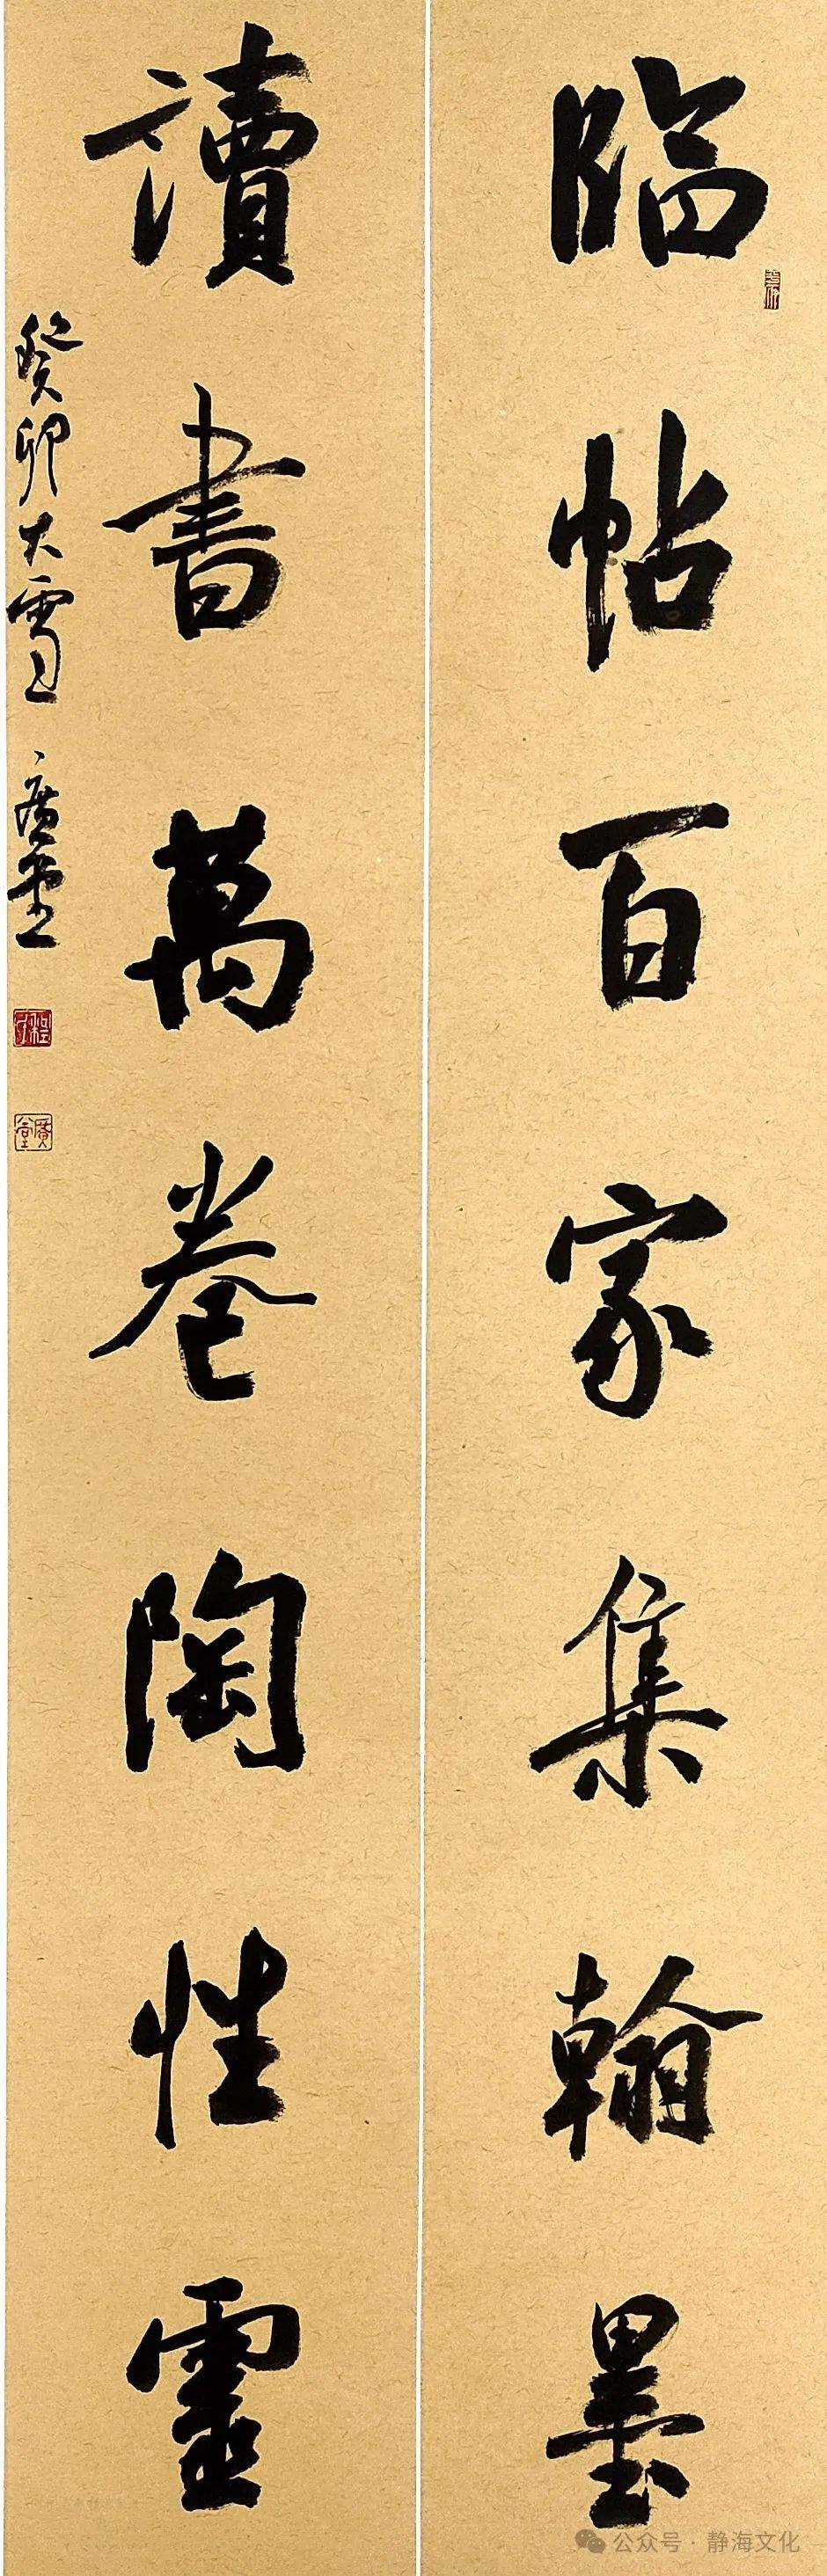 臨帖百家集翰墨
讀書萬卷陶性靈
癸卯大雪 廣堂
廣堂
公众号·静海文化